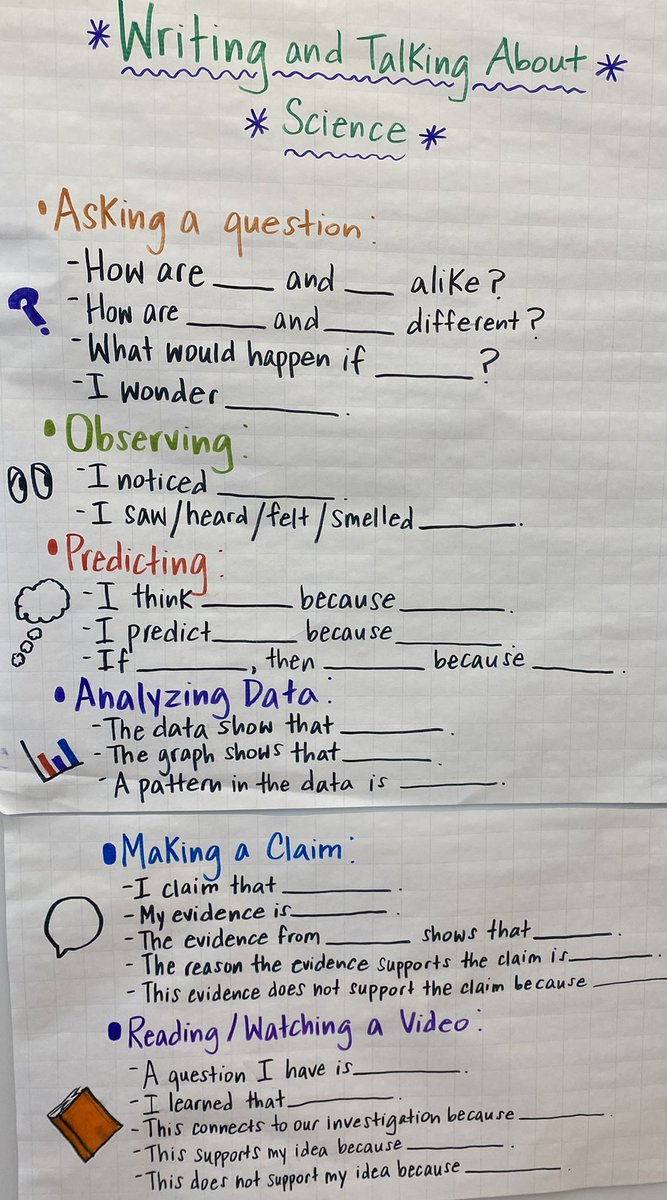 *Writing and Talking About*
*Science*
•Asking a question:
-How are ____ and ____ alike?
-How are ____ and ____ different?
-What would happen if ____?
-I wonder ____.
?
•Observing:
-I noticed ____.
-I saw/heard/felt/smelled ____.
•Predicting:
-I think ____ because ____.
-I predict ____ because ____.
-If ____, then ____ because ____.
•Analyzing Data:
-The data show that ____.
-The graph shows that ____.
-A pattern in the data is ____.
•Making a Claim:
-I claim that ____.
-My evidence is ____.
-The evidence from ____ shows that ____.
-The reason the evidence supports the claim is ____.
-This evidence does not support the claim because ____
•Reading/Watching a Video:
-A question I have is ____.
-I learned that ____.
-This connects to our investigation because ____.
-This supports my idea because ____.
-This does not support my idea because ____.